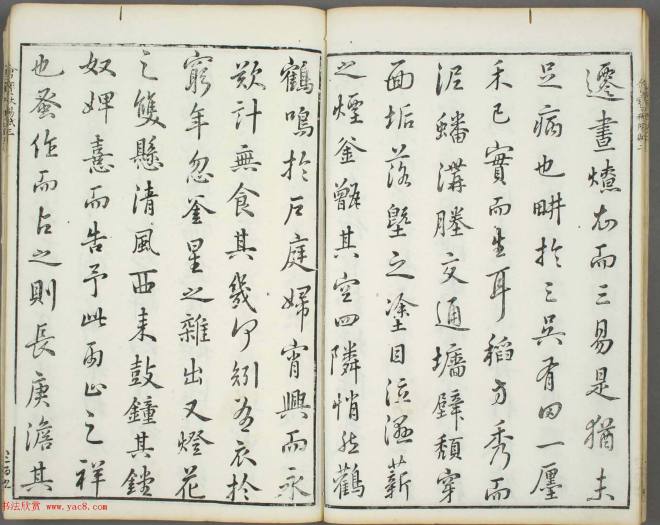 遷晝燎衣而三易是猶未
足病也畊於三吳有田一廛
禾已實而生耳稻方秀而
泥蟠溝塍交通墻壁頹穿
面垢落壁之塗目泣濕薪
之煙釜甑其空四隣悄然鸛
鶴鳴於戶庭婦宵興而永
歎計無食其幾何矧有衣於
窮年忽釜星之雜出又燈花
之雙懸清風西來鼓鐘其鏜
奴婢喜而告予此雨止之祥
也蚤作而占之則長庚澹其
三百九
书法欣赏 www.yac8.com